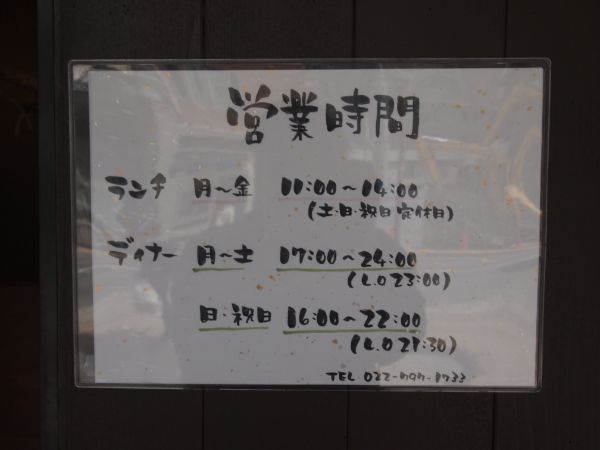 営業時間
ランチ 月~金 11:00~14:00
(土・日・祝日定休日)
ディナー 月~土 17:00~24:00
(L.O 23:00)
日・祝日 16:00~22:00
(L.O 21:30)
TEL 022-797-1733